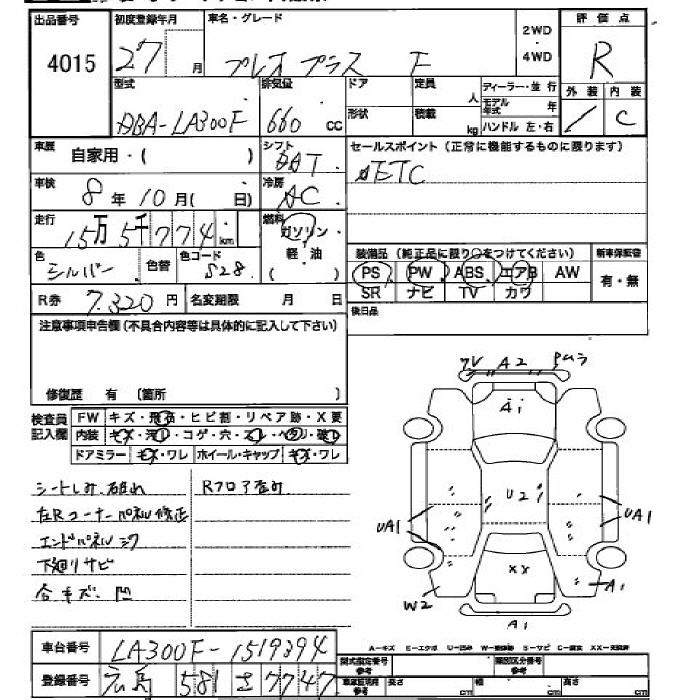 出品番号 初度登録年月 車名・グレード 2WD 評価点
4015 27 月 プレオプラス F 4WD R
型式 排気量 ドア 定員 人 ディーラー・並行 外装 内装
DBA-LA300F 660 cc 形状 積載 kg モデル年式 年 ハンドル 左・右 / C
車歴 自家用・( ) シフト AT セールスポイント(正常に機能するものに限ります)
車検 8年10月( 日) 冷房 AC ETC
走行 15万5千774km 燃料 ガソリン・軽油
色 シルバー 色替 色コード S28 装備品(純正品に限り○をつけてください) 新車保証書
PS PW ABS エアB AW 有・無
R券 7.320円 名変期限 月 日 SR ナビ TV カワ
注意事項申告欄(不具合内容等は具体的に記入して下さい) 後日品
修復歴 有 〔箇所 〕
検査員記入欄 FW キズ・飛石・ヒビ割・リペア跡・X要
内装 キズ・汚れ・コゲ・穴・スレ・ヘタリ・破れ
ドアミラー キズ・ワレ ホイール・キャップ キズ・ワレ
ワレ A2
A1
U2
UA1 UA1
XX
W2 A1
A1
シートしみ、破れ Rフロア歪み
左Rコーナーパネル修正
エンドパネル
下廻りサビ
合キズ、凹
A-キズ E-エクボ U-凹み W-補修跡 S-サビ C-腐食 XX-交換済
車台番号 LA300F-1519394
登録番号 広島 581 さ 7747
型式指定番号 参考 類別区分番号 参考
参考 長さ cm 幅 cm 高さ cm